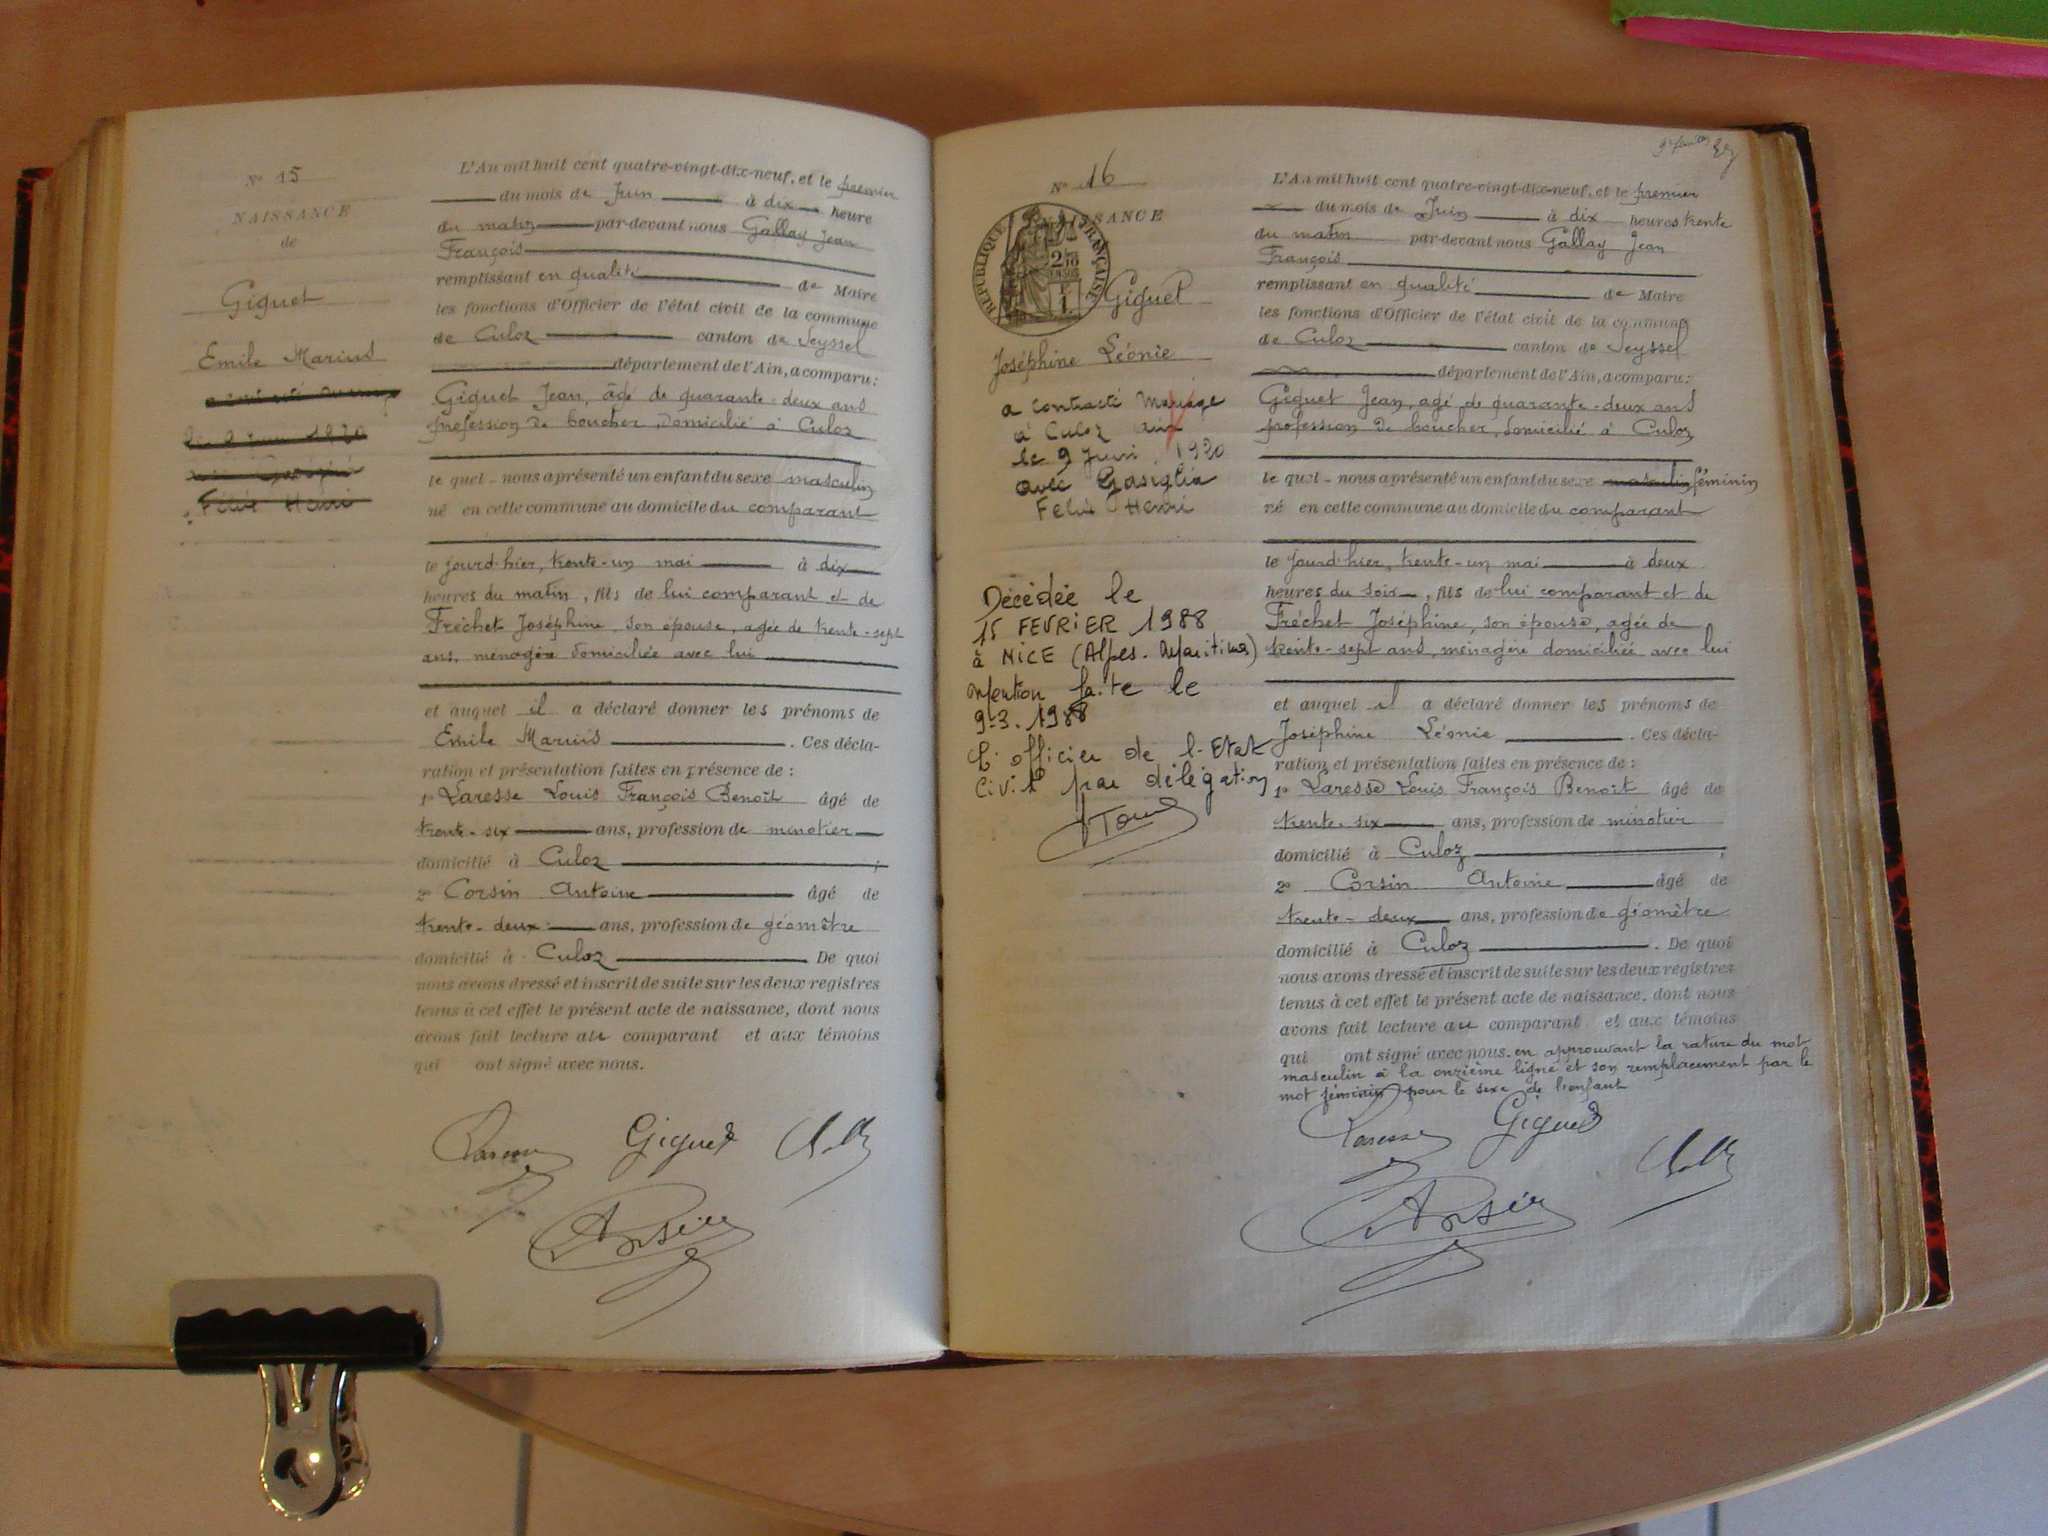 Nº 15
NAISSANCE
de
Giguet
Emile Marius
le 9 juin 1920
Félix Henri
L'An mil huit cent quatre-vingt-dix-neuf, et le premier
du mois de Juin à dix heure
du matin par-devant nous Gallay Jean
François
remplissant en qualité de Maire
les fonctions d'Officier de l'état civil de la commune
de Culoz canton de Seyssel
département de l'Ain, a comparu :
Giguet Jean, âgé de quarante-deux ans
profession de boucher, domicilié à Culoz
le quel - nous a présenté un enfant du sexe masculin
né en cette commune au domicile du comparant
le jourd'hier, trente-un mai à dix
heures du matin, fils de lui comparant et de
Fréchet Joséphine, son épouse, agée de trente-sept
ans, ménagère domiciliée avec lui
et auquel il a déclaré donner les prénoms de
Emile Marius . Ces décla-
ration et présentation faites en présence de :
1º Laresse Louis François Benoît âgé de
trente-six ans, profession de minotier
domicilié à Culoz ;
2º Corsin Antoine âgé de
trente-deux ans, profession de géomètre
domicilié à Culoz De quoi
nous avons dressé et inscrit de suite sur les deux registres
tenus à cet effet le présent acte de naissance, dont nous
avons fait lecture au comparant et aux témoins
qui ont signé avec nous.
Laresse Giguet
Nº 16
NAISSANCE
RÉPUBLIQUE FRANÇAISE
2/10 EN SUS
Giguet
Joséphine Léonie
a contracté Mariage
à Culoz
le 9 Juin 1920
avec Gasiglia
Félix Henri
Décédée le
15 FEVRIER 1988
à NICE (Alpes-Maritimes)
Mention faite le
9-3-1988
L'officier de l'Etat
Civil par délégation
L'An mil huit cent quatre-vingt-dix-neuf, et le premier
du mois de Juin à dix heures trente
du matin par-devant nous Gallay Jean
François
remplissant en qualité de Maire
les fonctions d'Officier de l'état civil de la commune
de Culoz canton de Seyssel
département de l'Ain, a comparu :
Giguet Jean, agé de quarante-deux ans
profession de boucher, domicilié à Culoz
le quel - nous a présenté un enfant du sexe masculin féminin
né en cette commune au domicile du comparant
le jourd'hier, trente-un mai à deux
heures du soir, fils de lui comparant et de
Fréchet Joséphine, son épouse, agée de
trente-sept ans, ménagère domiciliée avec lui
et auquel il a déclaré donner les prénoms de
Joséphine Léonie . Ces décla-
ration et présentation faites en présence de :
1º Laresse Louis François Benoit âgé de
trente-six ans, profession de minotier
domicilié à Culoz ;
2º Corsin Antoine âgé de
trente-deux ans, profession de géomètre
domicilié à Culoz . De quoi
nous avons dressé et inscrit de suite sur les deux registres
tenus à cet effet le présent acte de naissance, dont nous
avons fait lecture au comparant et aux témoins
qui ont signé avec nous. en approuvant la rature du mot
masculin à la onzième ligne et son remplacement par le
mot féminin pour le sexe de l'enfant
Laresse Giguet